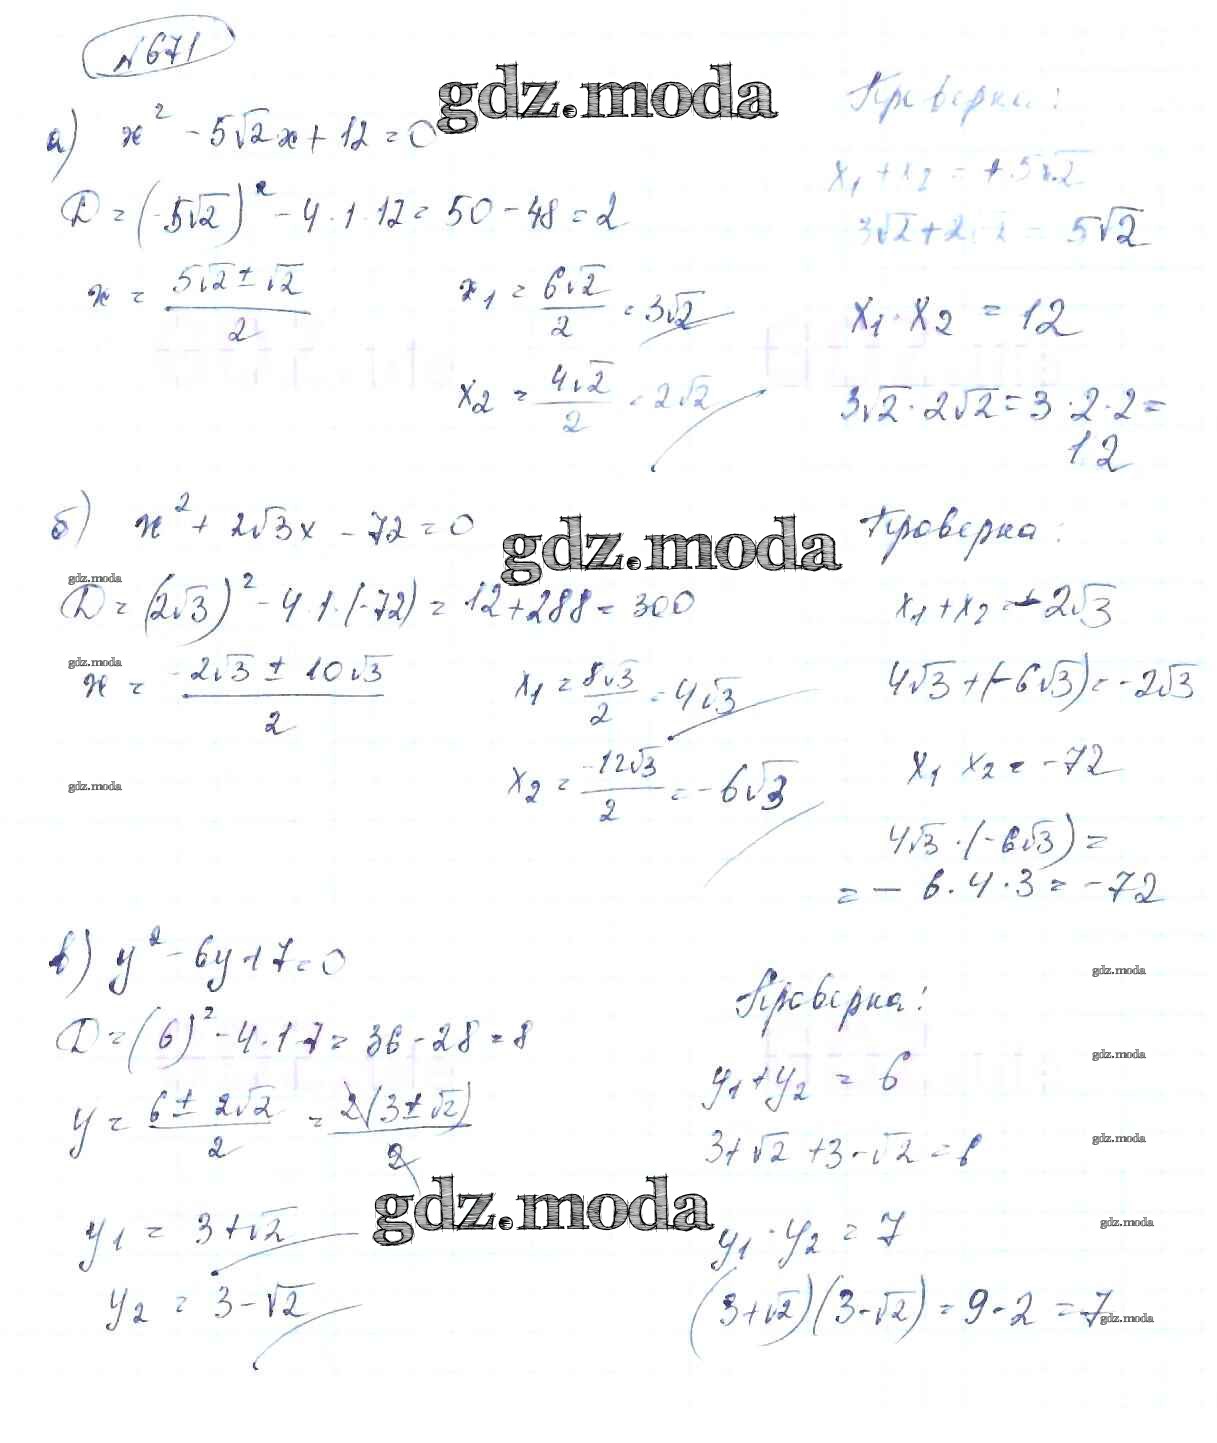 №671
gdz.moda
а) x² - 5√2x + 12 = 0
D = (-5√2)² - 4·1·12 = 50 - 48 = 2
x = (5√2 ± √2)/2
x₁ = 6√2/2 = 3√2
x₂ = 4√2/2 = 2√2
Проверка:
x₁ + x₂ = +5√2
3√2 + 2√2 = 5√2
x₁·x₂ = 12
3√2·2√2 = 3·2·2 =
12
б) x² + 2√3x - 72 = 0
gdz.moda
gdz.moda
D = (2√3)² - 4·1·(-72) = 12 + 288 = 300
gdz.moda
x = (-2√3 ± 10√3)/2
x₁ = 8√3/2 = 4√3
gdz.moda
x₂ = -12√3/2 = -6√3
Проверка:
x₁ + x₂ = -2√3
4√3 + (-6√3) = -2√3
x₁ x₂ = -72
4√3·(-6√3) =
= - 6·4·3 = -72
в) y² - 6y + 7 = 0
D = (6)² - 4·1·7 = 36 - 28 = 8
y = (6 ± 2√2)/2 = 2(3 ± √2)/2
gdz.moda
y₁ = 3 + √2
y₂ = 3 - √2
Проверка:
y₁ + y₂ = 6
3 + √2 + 3 - √2 = 6
y₁·y₂ = 7
(3 + √2)(3 - √2) = 9 - 2 = 7
gdz.moda
gdz.moda
gdz.moda
gdz.moda
gdz.moda